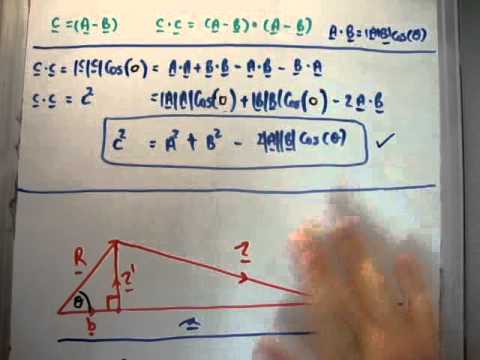 C = (A - B) C · C = (A - B) · (A - B) A · B = |A||B|Cos(θ)
C · C = |C||C|Cos(0) = A · A + B · B - A · B - B · A
C · C = C² = |A||A|Cos(0) + |B||B|Cos(0) - 2A · B
C² = A² + B² - 2|A||B|Cos(θ) ✓
R
θ
b